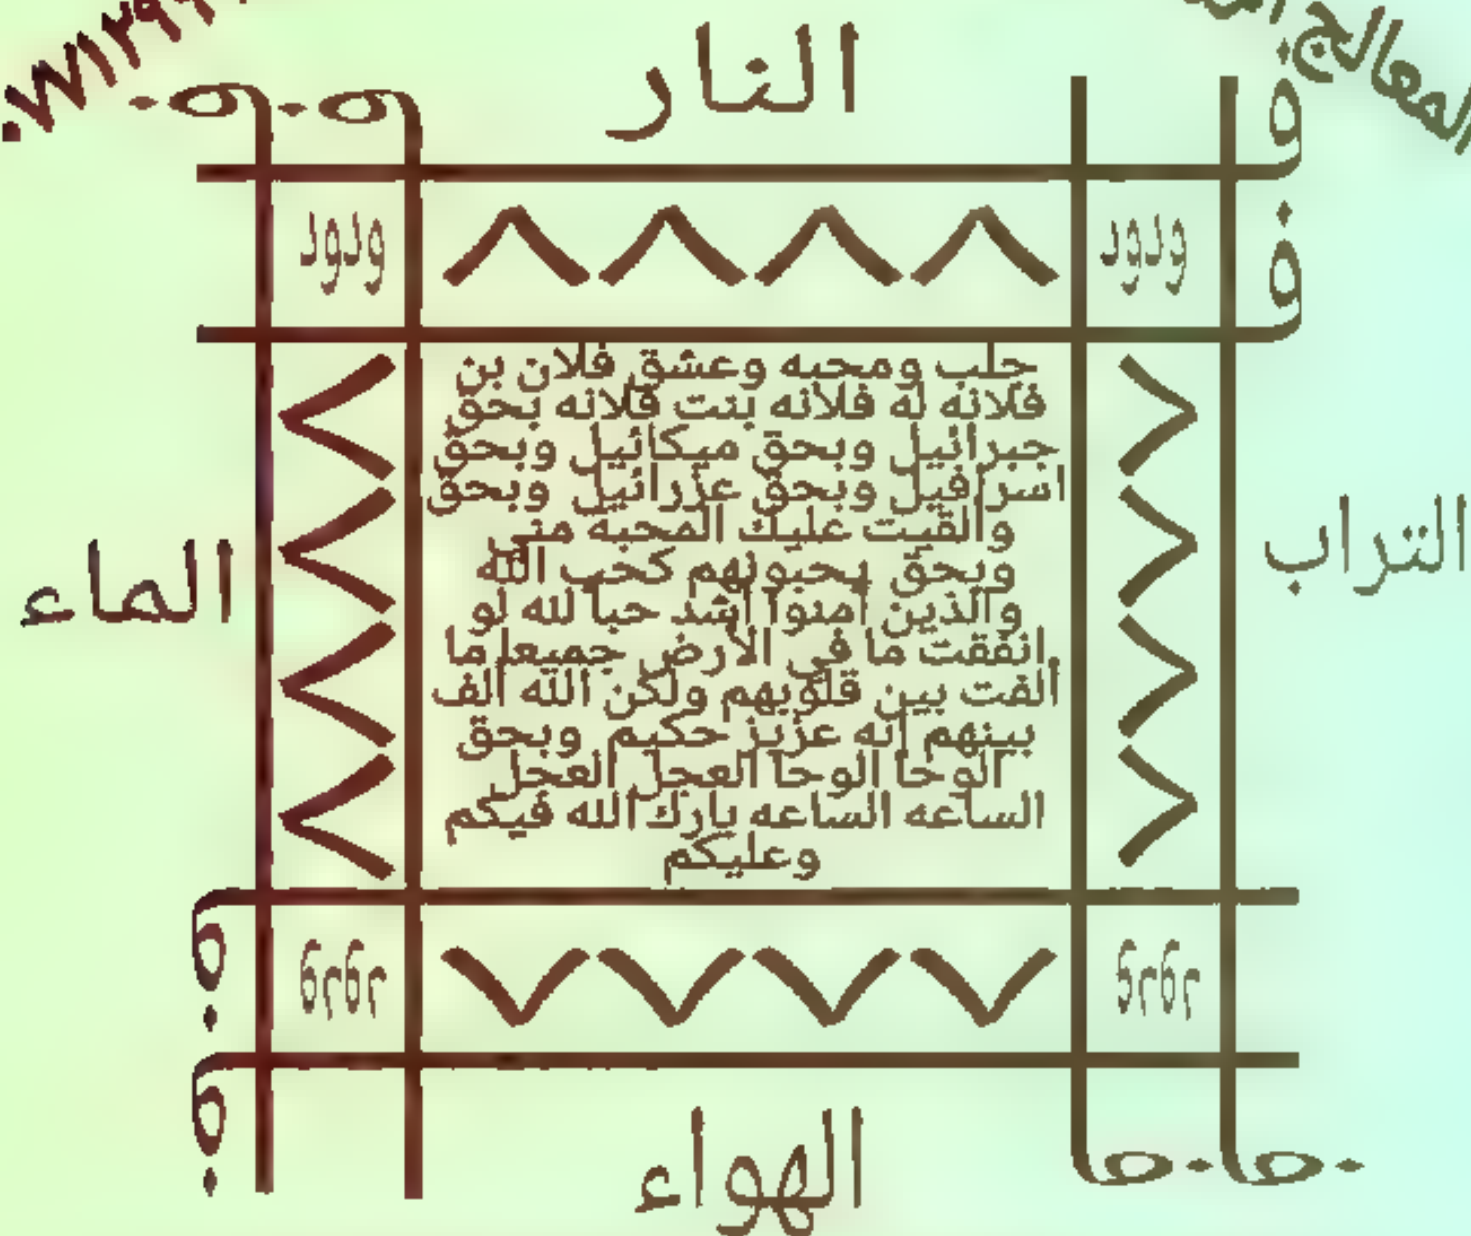 المعالج
النار
ودود
ودود
٨٨٨٨
جلب ومحبه وعشق فلان بن
فلانه له فلانه بنت فلانه بحق
جبرائيل وبحق ميكائيل وبحق
اسرافيل وبحق عزرائيل وبحق
والقيت عليك المحبه مني
وبحق يحبونهم كحب الله
والذين آمنوا أشد حبا لله لو
انفقت ما في الأرض جميعا ما
ألفت بين قلوبهم ولكن الله ألف
بينهم إنه عزيز حكيم وبحق
الوحا الوحا العجل العجل
الساعه الساعه بارك الله فيكم
وعليكم
التراب
الماء
ودود
ودود
٧٧٧٧
الهواء